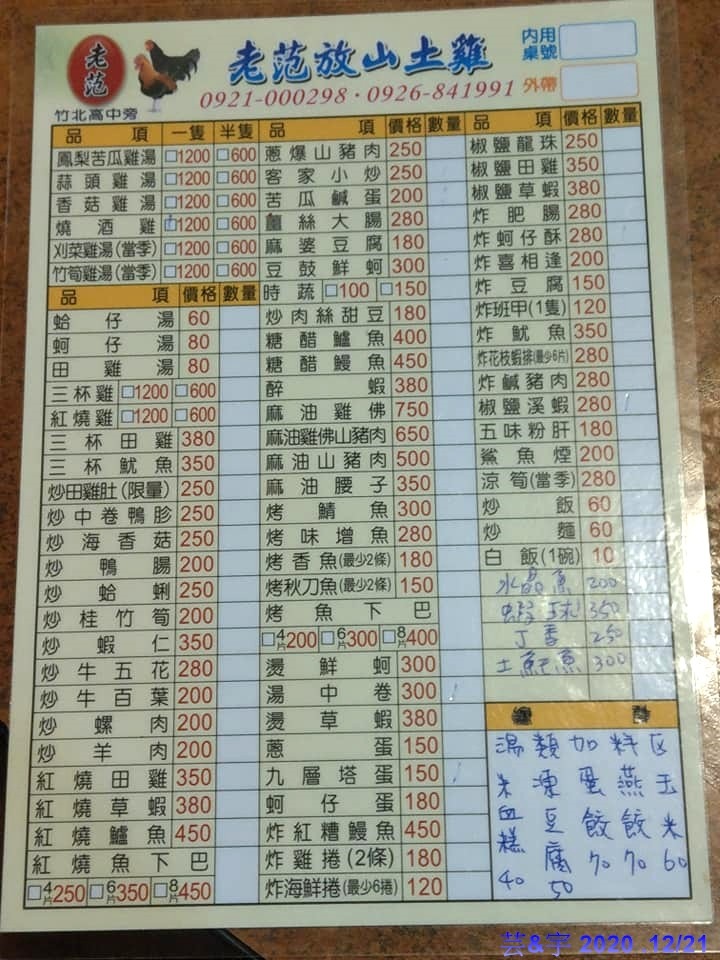 老范
老范放山土雞
內用桌號
0921-000298·0926-841991
外帶
竹北高中旁
品項 一隻 半隻
鳳梨苦瓜雞湯 □1200 □600
蒜頭雞湯 □1200 □600
香菇雞湯 □1200 □600
燒酒雞 □1200 □600
刈菜雞湯(當季) □1200 □600
竹筍雞湯(當季) □1200 □600
品項 價格 數量
蛤仔湯 60
蚵仔湯 80
田雞湯 80
三杯雞 □1200 □600
紅燒雞 □1200 □600
三杯田雞 380
三杯魷魚 350
炒田雞肚(限量) 250
炒中卷鴨胗 250
炒海香菇 250
炒鴨腸 200
炒蛤蜊 250
炒桂竹筍 200
炒蝦仁 350
炒牛五花 280
炒牛百葉 200
炒螺肉 200
炒羊肉 200
紅燒田雞 350
紅燒草蝦 380
紅燒鱸魚 450
紅燒魚下巴
□4片250 □6片350 □8片450
品項 價格 數量
蔥爆山豬肉 250
客家小炒 250
苦瓜鹹蛋 200
薑絲大腸 280
麻婆豆腐 180
豆鼓鮮蚵 300
時蔬 □100 □150
炒肉絲甜豆 180
糖醋鱸魚 400
糖醋鰻魚 450
醉蝦 380
麻油雞佛 750
麻油雞佛山豬肉 650
麻油山豬肉 500
麻油腰子 350
烤鯖魚 300
烤味增魚 280
烤香魚(最少2條) 180
烤秋刀魚(最少2條) 150
烤魚下巴
□4片200 □6片300 □8片400
燙鮮蚵 300
湯中卷 300
燙草蝦 380
蔥蛋 150
九層塔蛋 150
蚵仔蛋 180
炸紅糟鰻魚 450
炸雞捲(2條) 180
炸海鮮捲(最少6捲) 120
品項 價格 數量
椒鹽龍珠 250
椒鹽田雞 350
椒鹽草蝦 380
炸肥腸 280
炸蚵仔酥 280
炸喜相逢 200
炸豆腐 150
炸班甲(1隻) 120
炸魷魚 350
炸花枝蝦排(最少6片) 280
炸鹹豬肉 280
椒鹽溪蝦 280
五味粉肝 180
鯊魚煙 200
涼筍(當季) 280
炒飯 60
炒麵 60
白飯(1碗) 10
水晶魚 200
蝦球 350
丁香 250
土魠魚 300
湯類加料区
米血糕 40
凍豆腐 50
蛋餃 70
燕餃 70
玉米 60
芸&宇 2020 .12/21